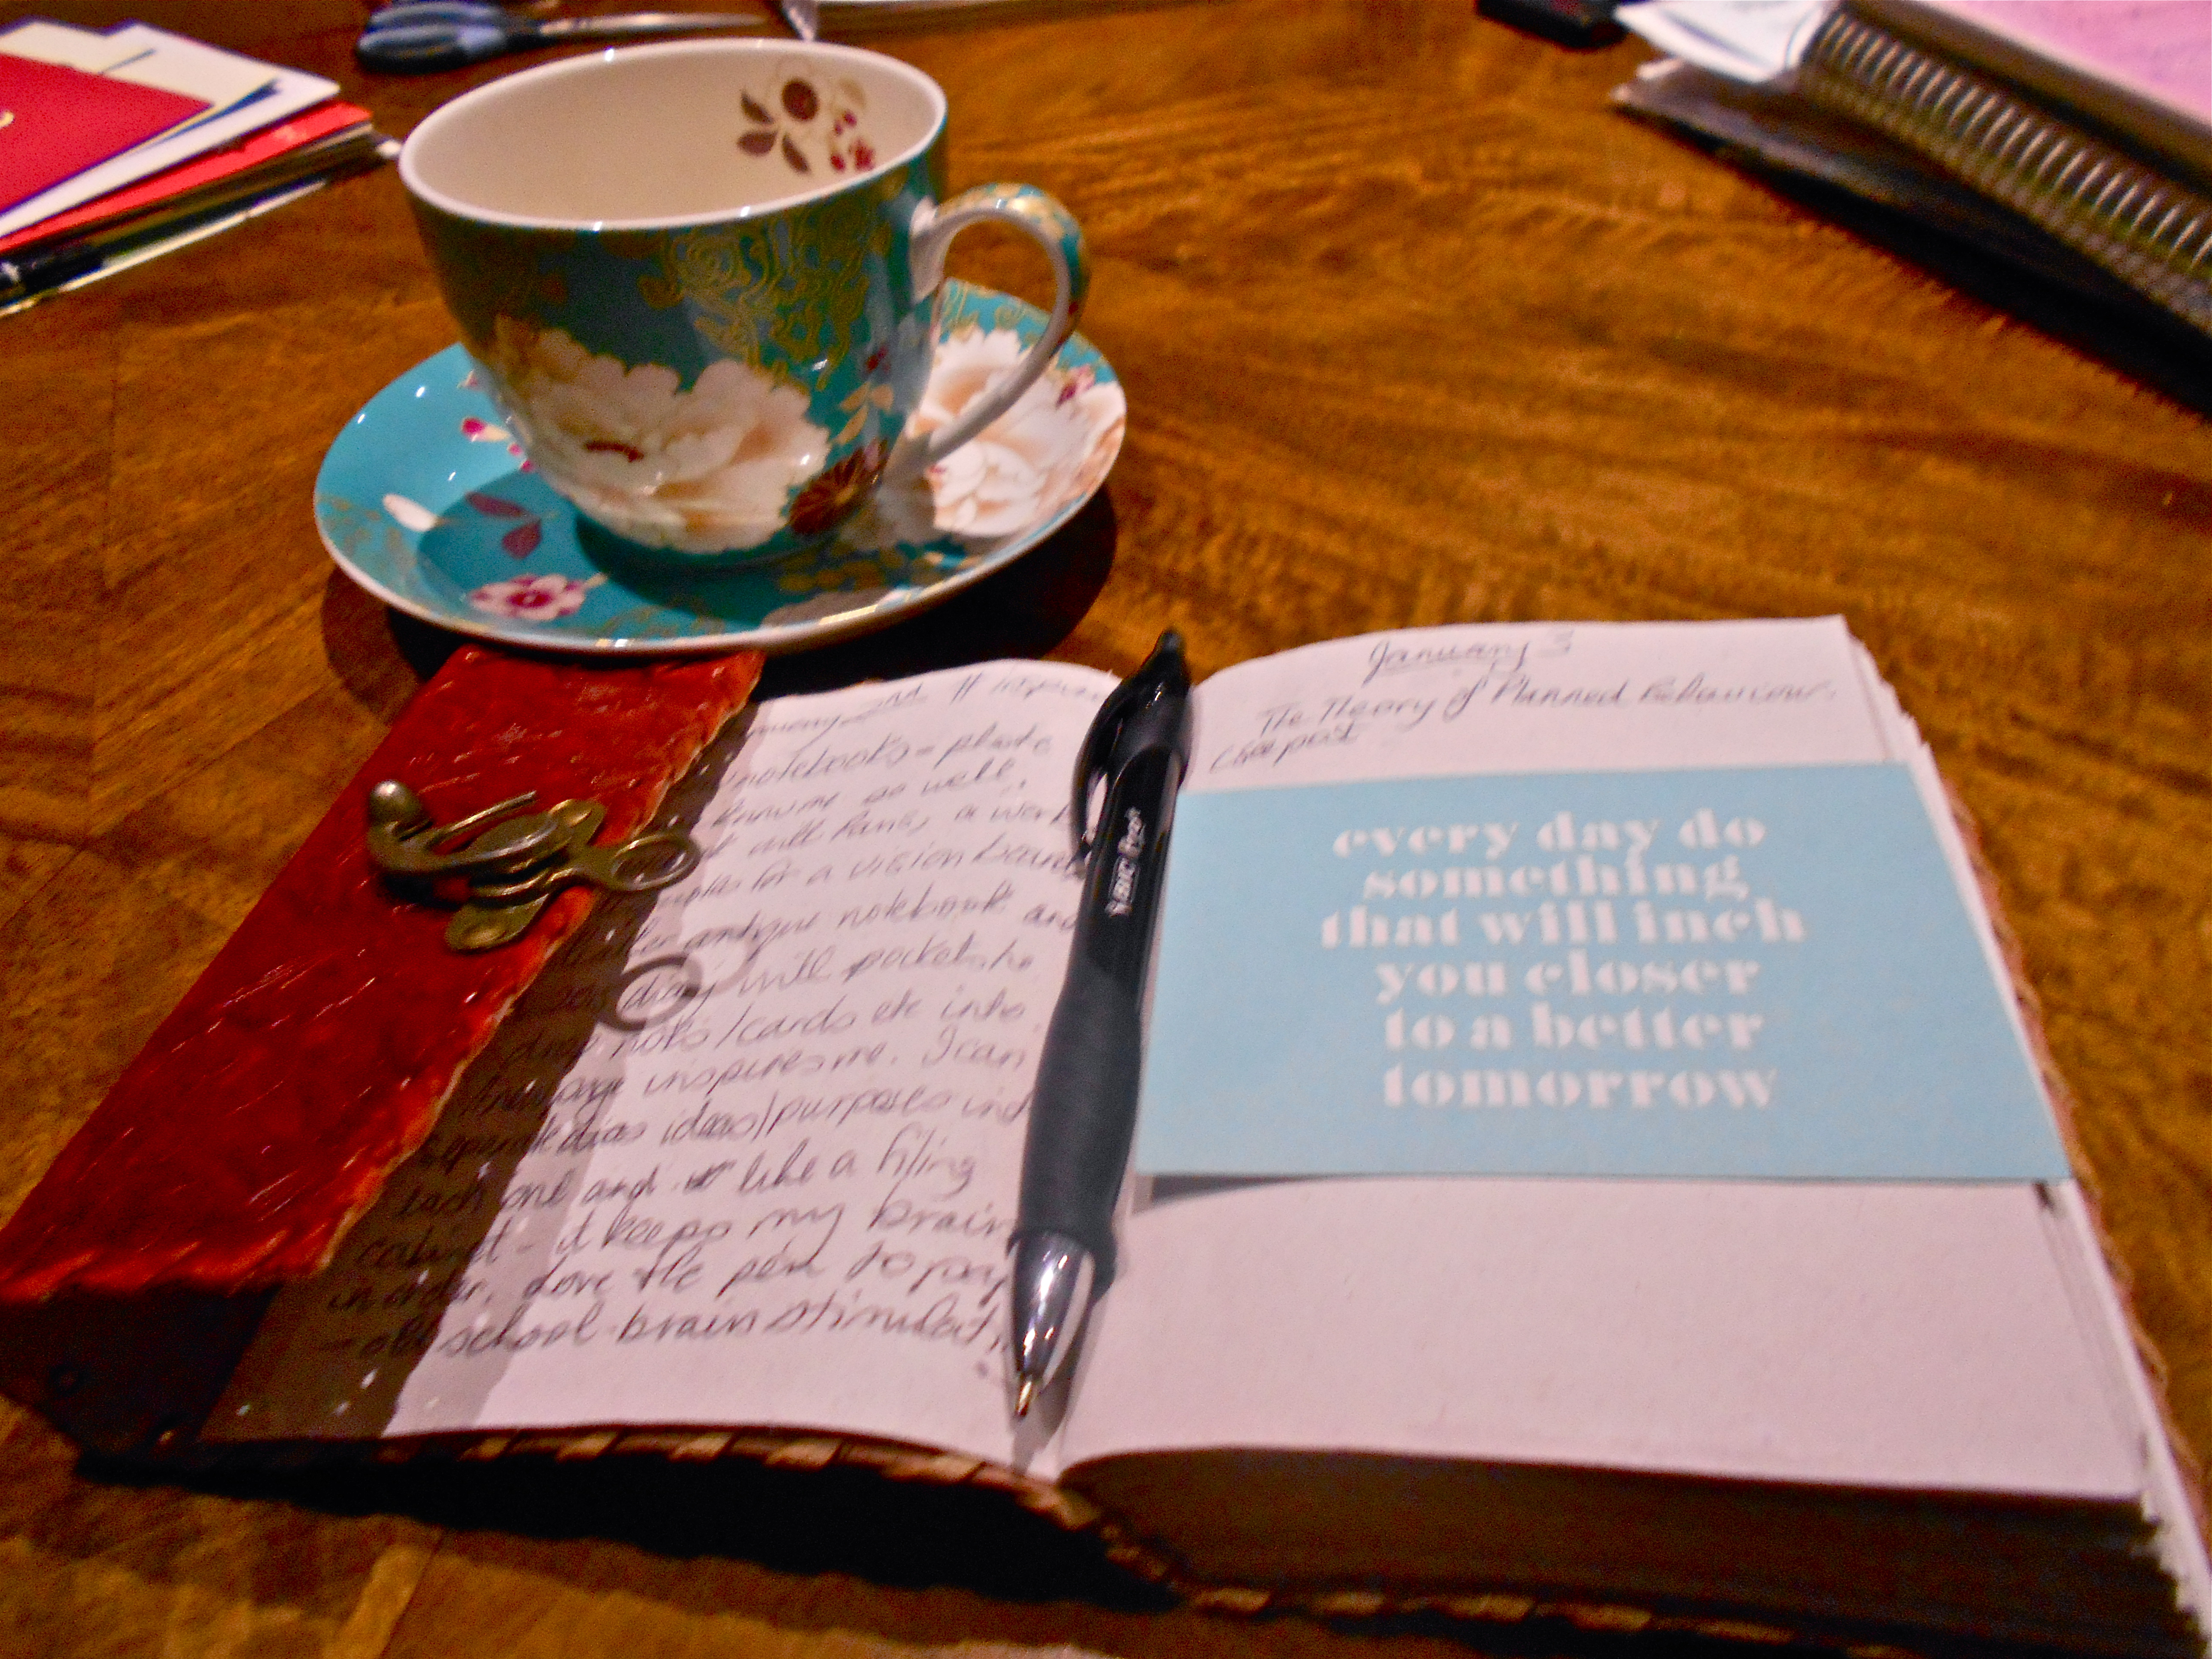 2nd # inspire
notebooks - photo
know me as well,
will have, a work
for a vision board
antique notebook and
diary with pockets to
notes/cards etc into
inspires me. I can
ideas/purposes into
each one and like a filing
cabinet - it keeps my brain
in order. Love the pen to
- old school brain
BIC
January 3
The Theory of Planned Behaviour
every day do
something
that will inch
you closer
to a better
tomorrow